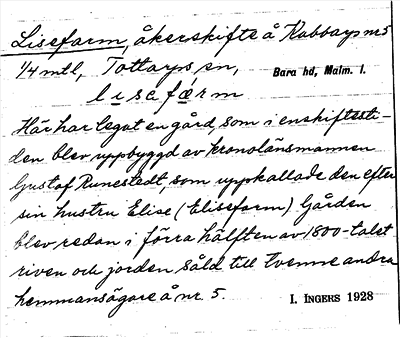 Lisefarm, åkerskifte å Kabbarps nr 5
1/4 mtl, Tottarps sn, Bara hd, Malm. l.
lisefærm
Här har legat en gård, som i enskiftesti-
den blev uppbyggd av kronolänsmannen
Gustaf Runestedt, som uppkallade den efter
sin hustru Elise (Elisefarm) Gården
blev redan i förra hälften av 1800-talet
riven och jorden såld till tvenne andra
hemmansägare å nr. 5. I. INGERS 1928